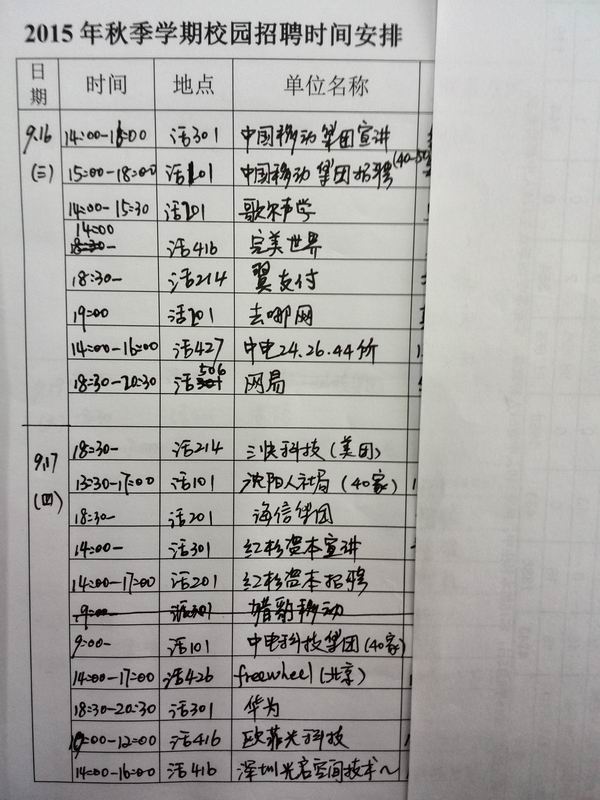 2015年秋季学期校园招聘时间安排
日期 时间 地点 单位名称
9.16 (三) 14:00-16:00 活301 中国移动集团宣讲
15:00-18:00 活101 中国移动集团招聘(40-50
14:00-15:30 活201 歌尔声学
14:00 活416 完美世界
18:30- 活214 翼支付
19:00 活201 去哪网
14:00-16:00 活427 中电24.26.44所
18:30-20:30 活506 网易
9.17 (四) 18:30- 活214 三快科技(美团)
13:30-17:00 活101 沈阳人社局(40家)
18:30- 活201 海信集团
14:00- 活301 红杉资本宣讲
14:00-17:00 活201 红杉资本招聘
9:00- 活301 猎豹移动
9:00- 活101 中电科技集团(40家)
14:00-17:00 活426 freewheel(北京)
18:30-20:30 活301 华为
10:00-12:00 活416 欧菲光科技
14:00-16:00 活416 深圳光启空间技术~